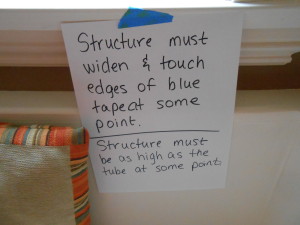 Structure must
widen & touch
edges of blue
tape at some
point.
Structure must
be as high as the
tube at some point.